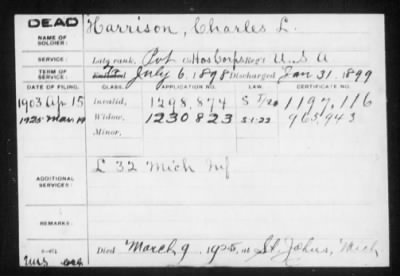 DEAD
NAME OF SOLDIER:
Harrison, Charles L.
SERVICE:
Late rank, Pvt Co. Hos Corps Reg't U.S.A
TERM OF SERVICE:
Enlisted July 6, 1898 Discharged Jan 31, 1899
DATE OF FILING. CLASS. APPLICATION NO. LAW. CERTIFICATE NO.
1903 Ap 15 Invalid, 1298,874 1197,116
1925 Mar 19 Widow, 1230823 965,943
Minor,
ADDITIONAL SERVICES:
L 32 Mich Inf
REMARKS:
Died March 9, 1925, at St. Johns, Mich